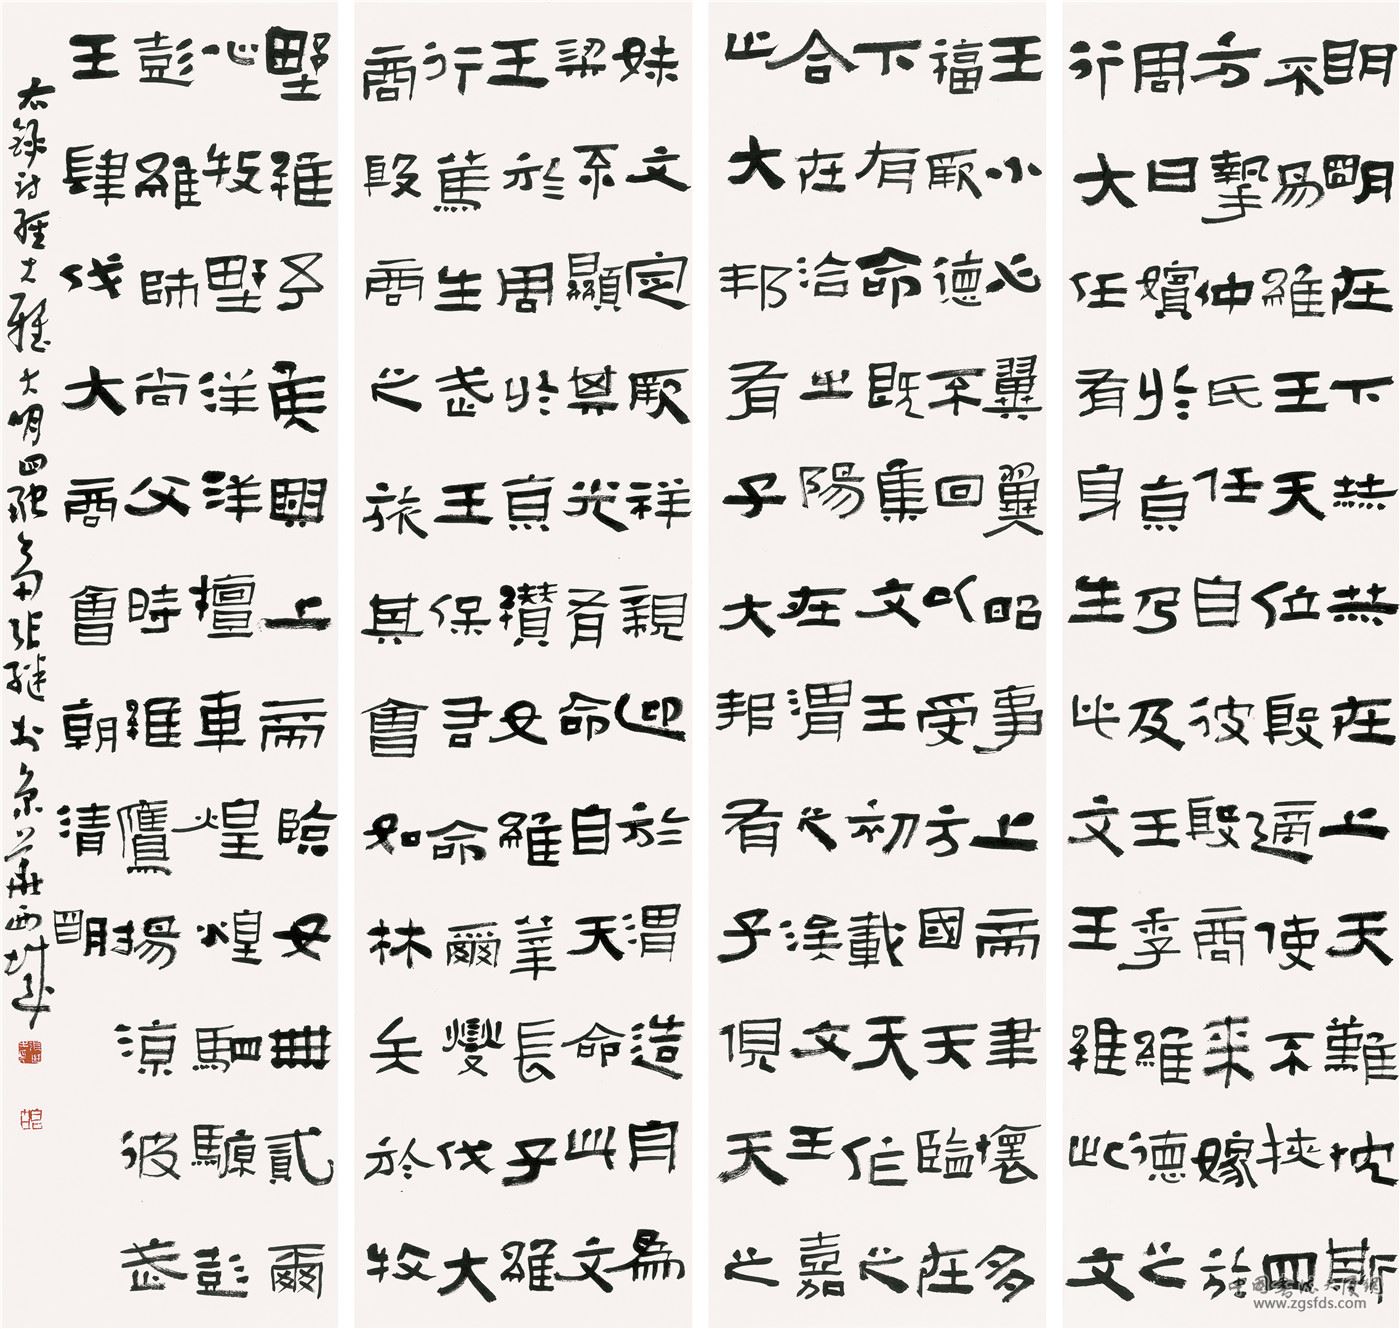 明明在下赫赫在上天難忱斯
不易維王天位殷適使不挾四
方摯仲氏任自彼殷商來嫁於
周曰嬪於京乃及王季維德之
行大任有身生此文王維此文
王小心翼翼昭事上帝聿懷多
福厥德不回以受方國天臨在
下有命既集文王初載天作之
合在洽之陽在渭之涘文王嘉
止大邦有子大邦有子俔天之
妹文定厥祥親迎於渭造舟為
梁不顯其光有命自天命此文
王於周於京纘女維莘長子維
行篤生武王保右命爾燮伐大
商殷商之旅其會如林矢於牧
野維予侯興上帝臨女無貳爾
心牧野洋洋檀車煌煌駟騵彭
彭維師尚父時維鷹揚涼彼武
王肆伐大商會朝清明
右錄詩經大雅大明四融齋張繼书京華西城
www.zgsfds.com